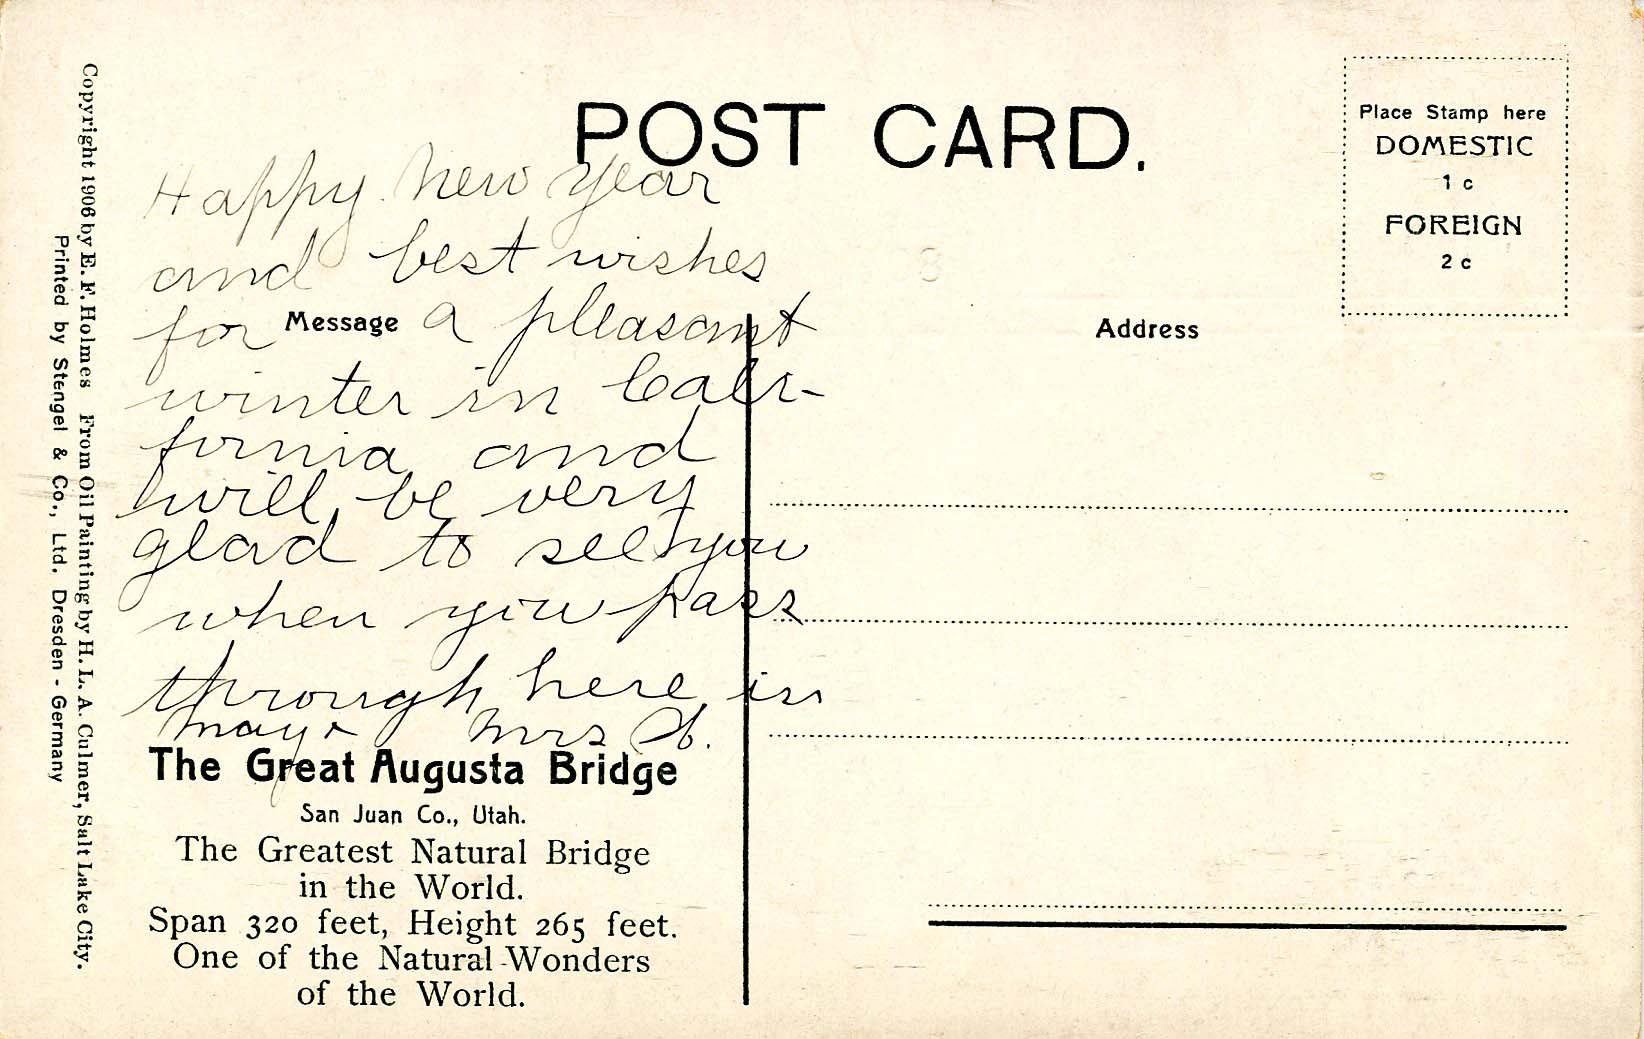 POST CARD.
Place Stamp here
DOMESTIC
1 c
FOREIGN
2 c
Happy New Year
and best wishes
for a pleasant
winter in Cali-
fornia and
will be very
glad to see you
when you pass
through here in
May. Mrs
Message
Address
The Great Augusta Bridge
San Juan Co., Utah.
The Greatest Natural Bridge
in the World.
Span 320 feet, Height 265 feet.
One of the Natural Wonders
of the World.
Copyright 1906 by E. F. Holmes From Oil Painting by H. L. A. Culmer, Salt Lake City.
Printed by Stengel & Co., Ltd. Dresden - Germany